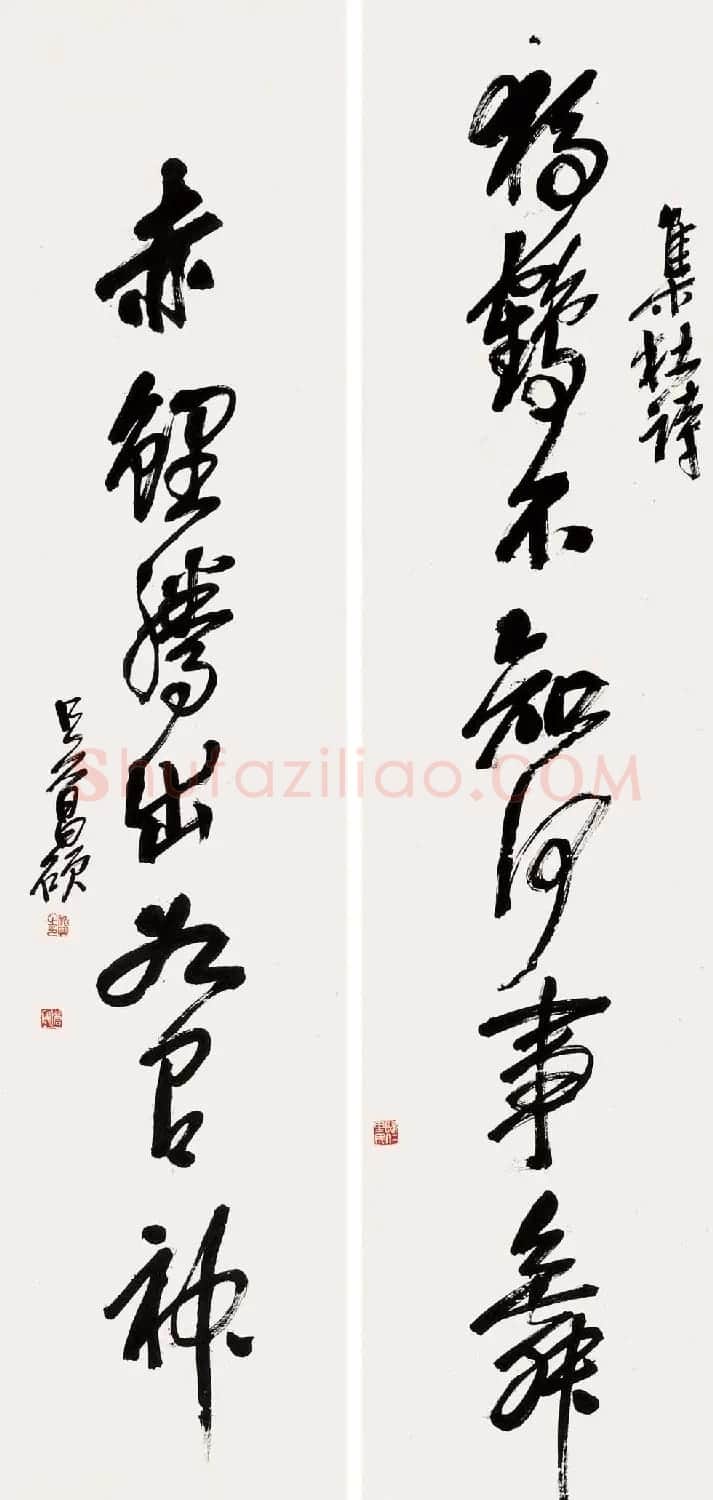 集杜詩
獨鶴不知何事舞
赤鯉騰出如有神
吳昌碩
Shufaziliao.COM